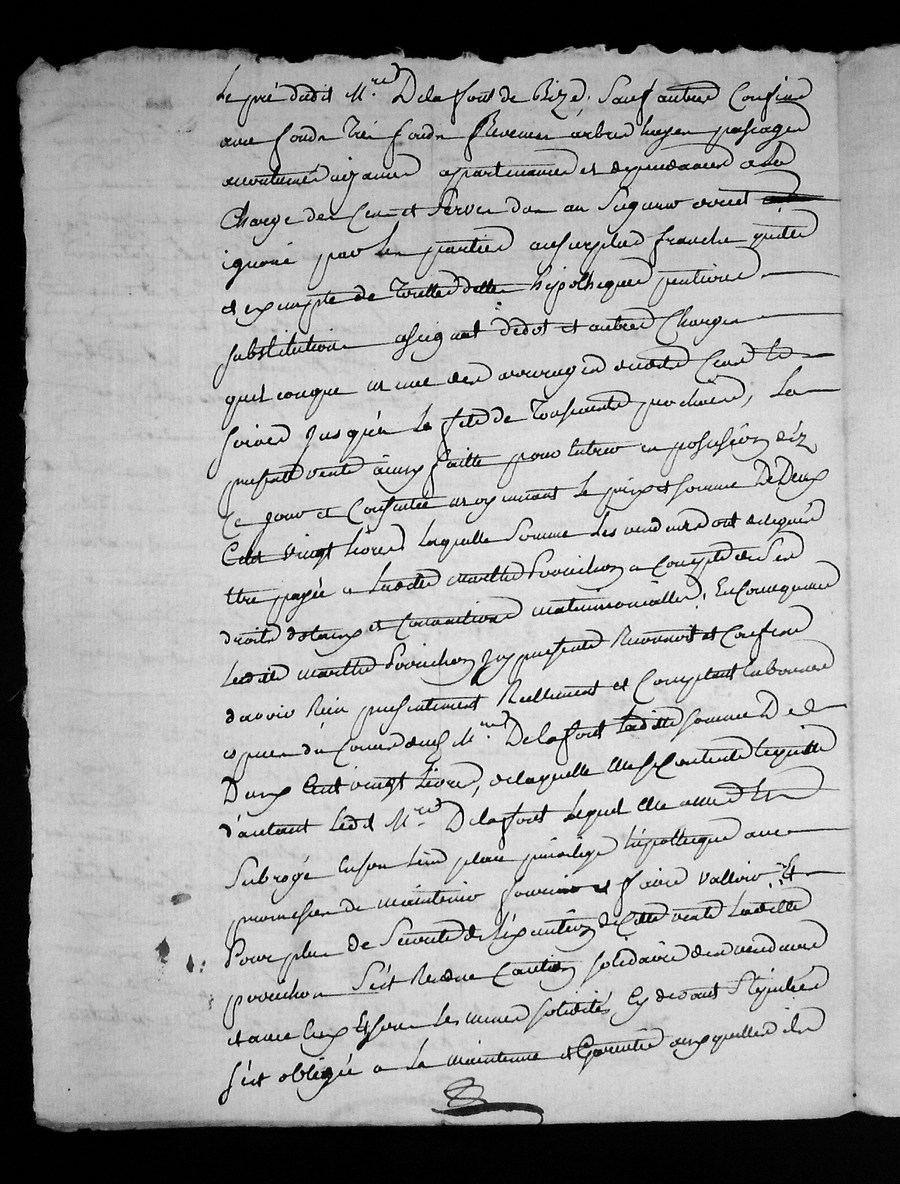 le pré dudit Mre Delafont de Bizé, sauf autres confins
avec fonds très fonds revenus arbres hayes passages
accoutumés aisances appartenances et dependances a la
Charge des Cens et servis dus au seigneur direct
ignoré par les parties au surplus franche quitte
et exempte de touttes dettes hipotheques pentions
substitutions assignat dedot et autres Charges
quelconque et même des arrerages dudit Cens et
servis jusqu'a la fete de Toussaints prochaine, La
presente vente ainsy faitte pour entrer en possession dez
Ce jour et Consentie moyennant le prix et somme De Deux
Cent vingt Livres laquelle somme les vendeurs ont delegués
etre payée a laditte marthe Provichon a Compte de Ses
droits dotaux et Conventions matrimonialles; En Consequance
laditte marthe Provichon icy presente Reconnoit et Confesse
davoir Reçu presentement Reellement et Comptant en bonnes
especes du Cours dudt Mre Delafont laditte somme De
Deux Cent vingt Livres, de laquelle elle se Contente et quitte
d'autant ledit Mre Delafont lequel elle a mis et
Subrogé en son lieu place privilege et hipotheque avec
promesses de maintenir fournir et faire valloir Et
Pour plus de Seureté de l'execution de Cette vente laditte
provichon s'est Rendue Caution solidaire des vendeurs
et avec eux et sous les memes solidités Cy devant stipulées
s'est obligée a la maintenue et Garentie auxquelles ils